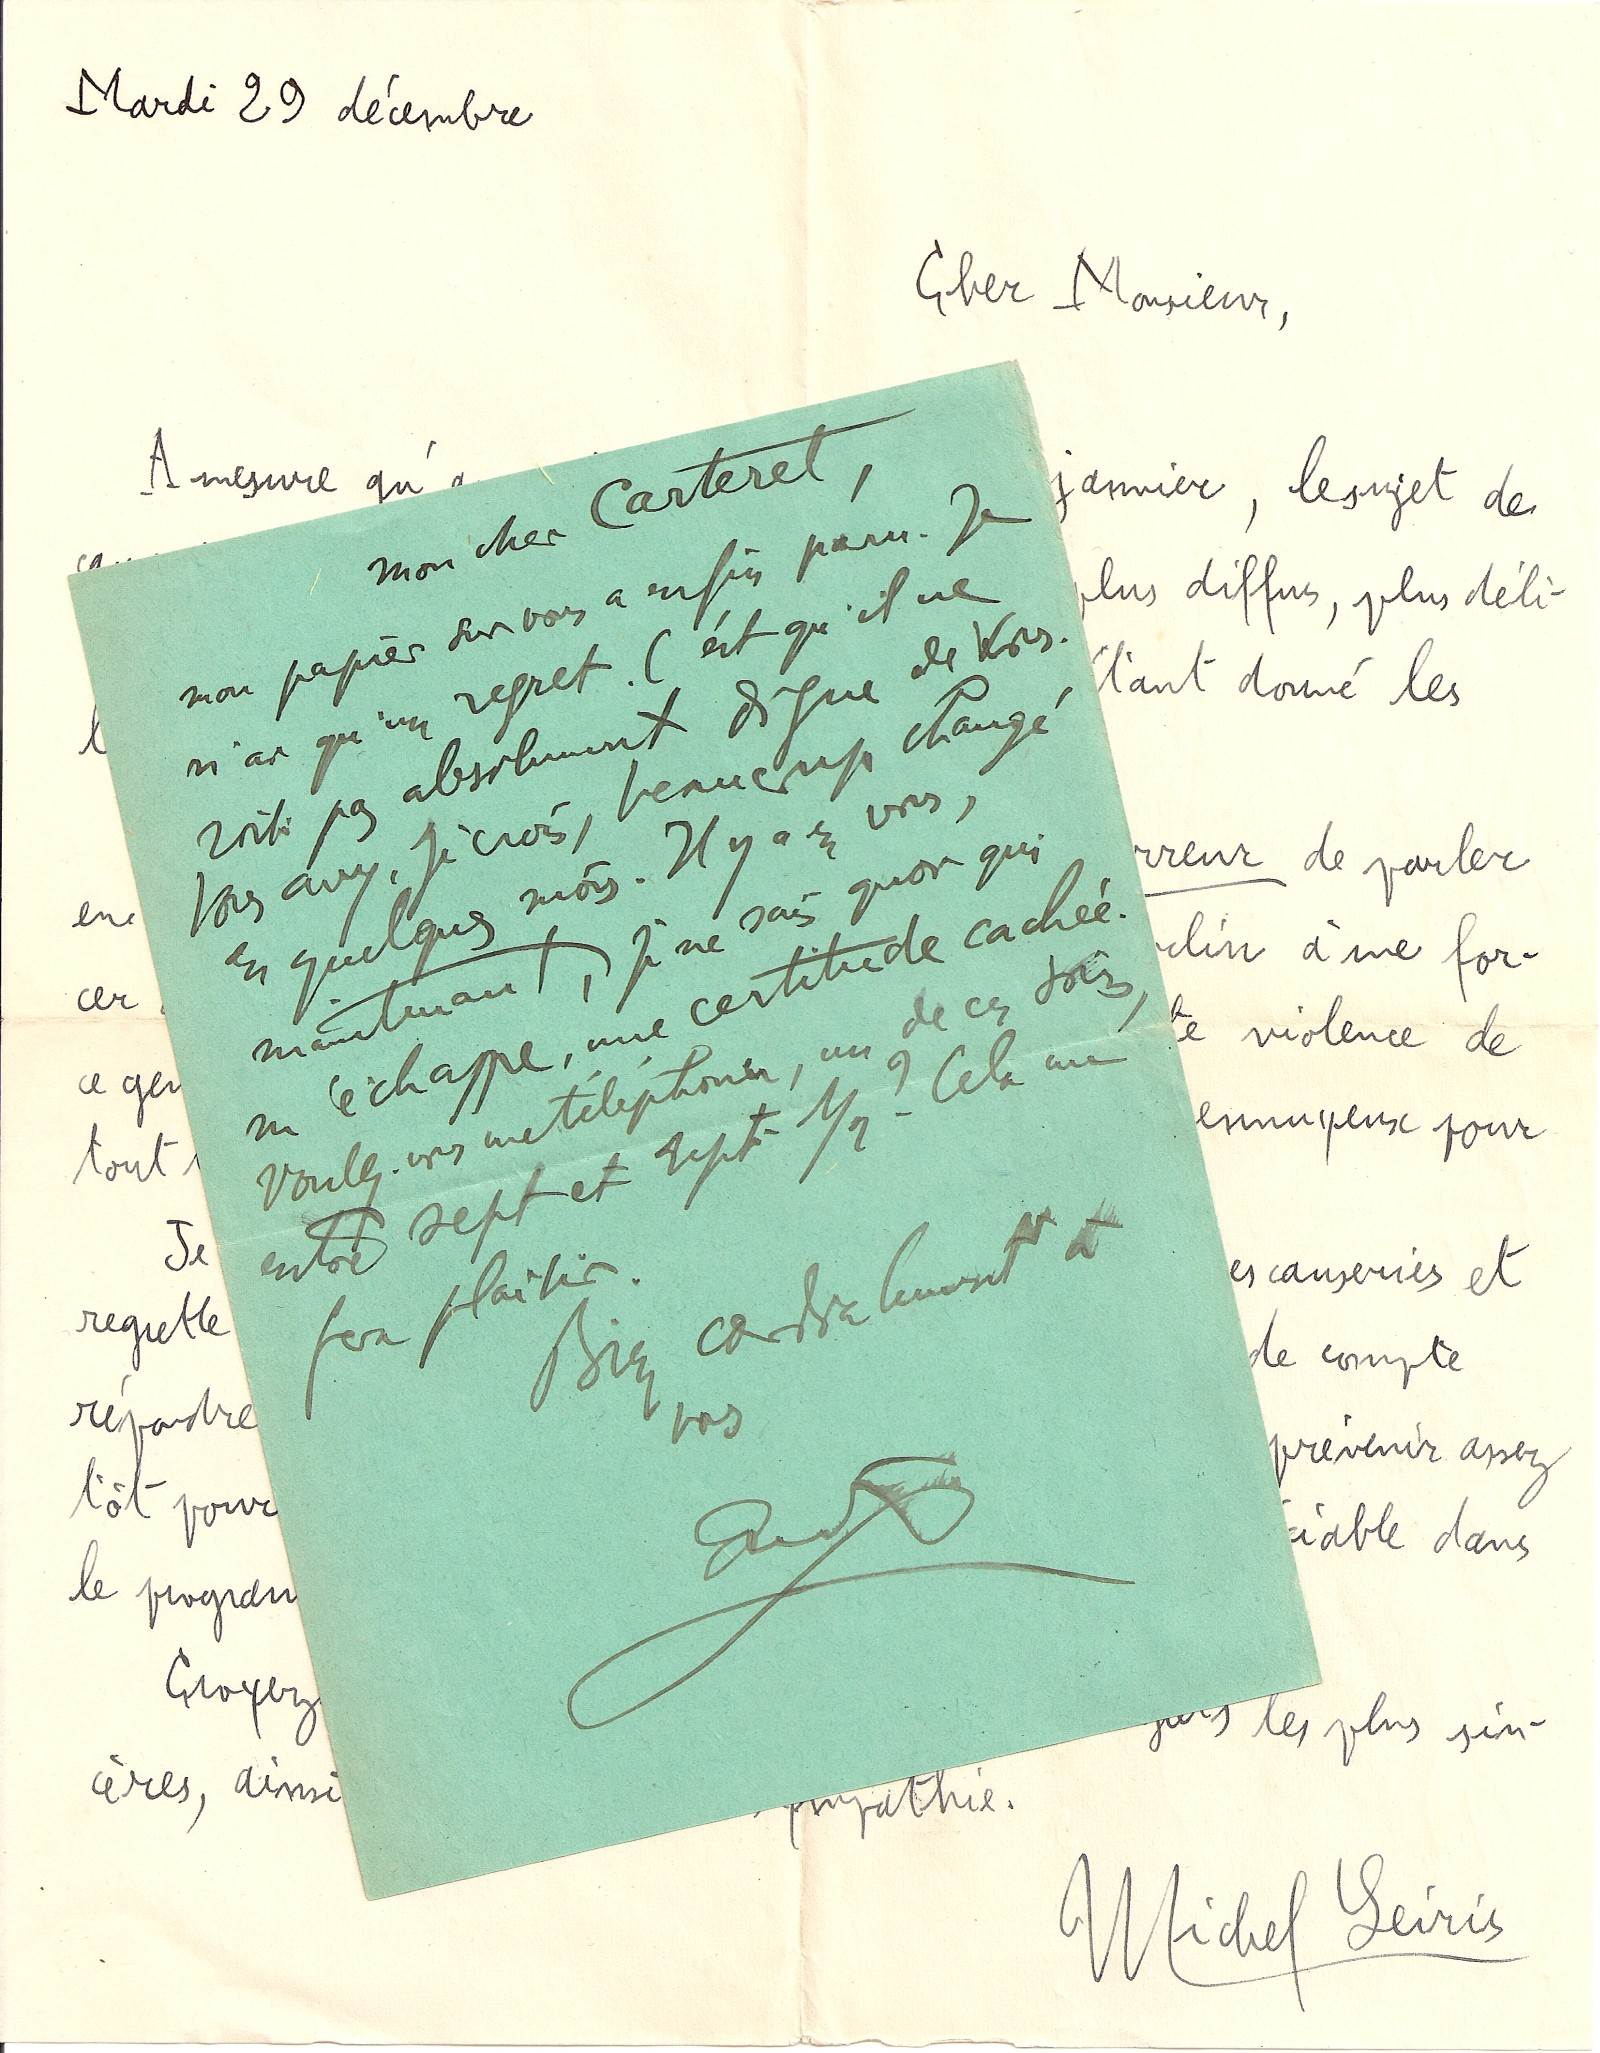 Mardi 29 décembre
Cher Monsieur,
A mesure qu'a
janvier, le sujet de
plus diffus, plus déli-
étant donné les
l
rreur de parler
cer
clin à me for-
ce gen
te violence de
tout
ennuyeux pour
Je
es causeries et
regrette
de compte
répondre
prévenir assez
tôt pour
ciable dans
le program
Croyez
les plus sin-
cères, ainsi
ympathie.
Michel Leiris
mon cher Carteret,
mon papier sur vous a enfin paru. Je
n'ai qu'un regret. C'est qu'il ne
soit pas absolument digne de vous.
Vous avez, je crois, beaucoup changé,
en quelques mois. Il y a en vous,
maintenant, je ne sais quoi qui
m'échappe, une certitude cachée.
Voulez-vous me téléphoner, un de ces soirs,
entre sept et sept 1/2 ? Cela me
fera plaisir.
Bien cordialement à
vous